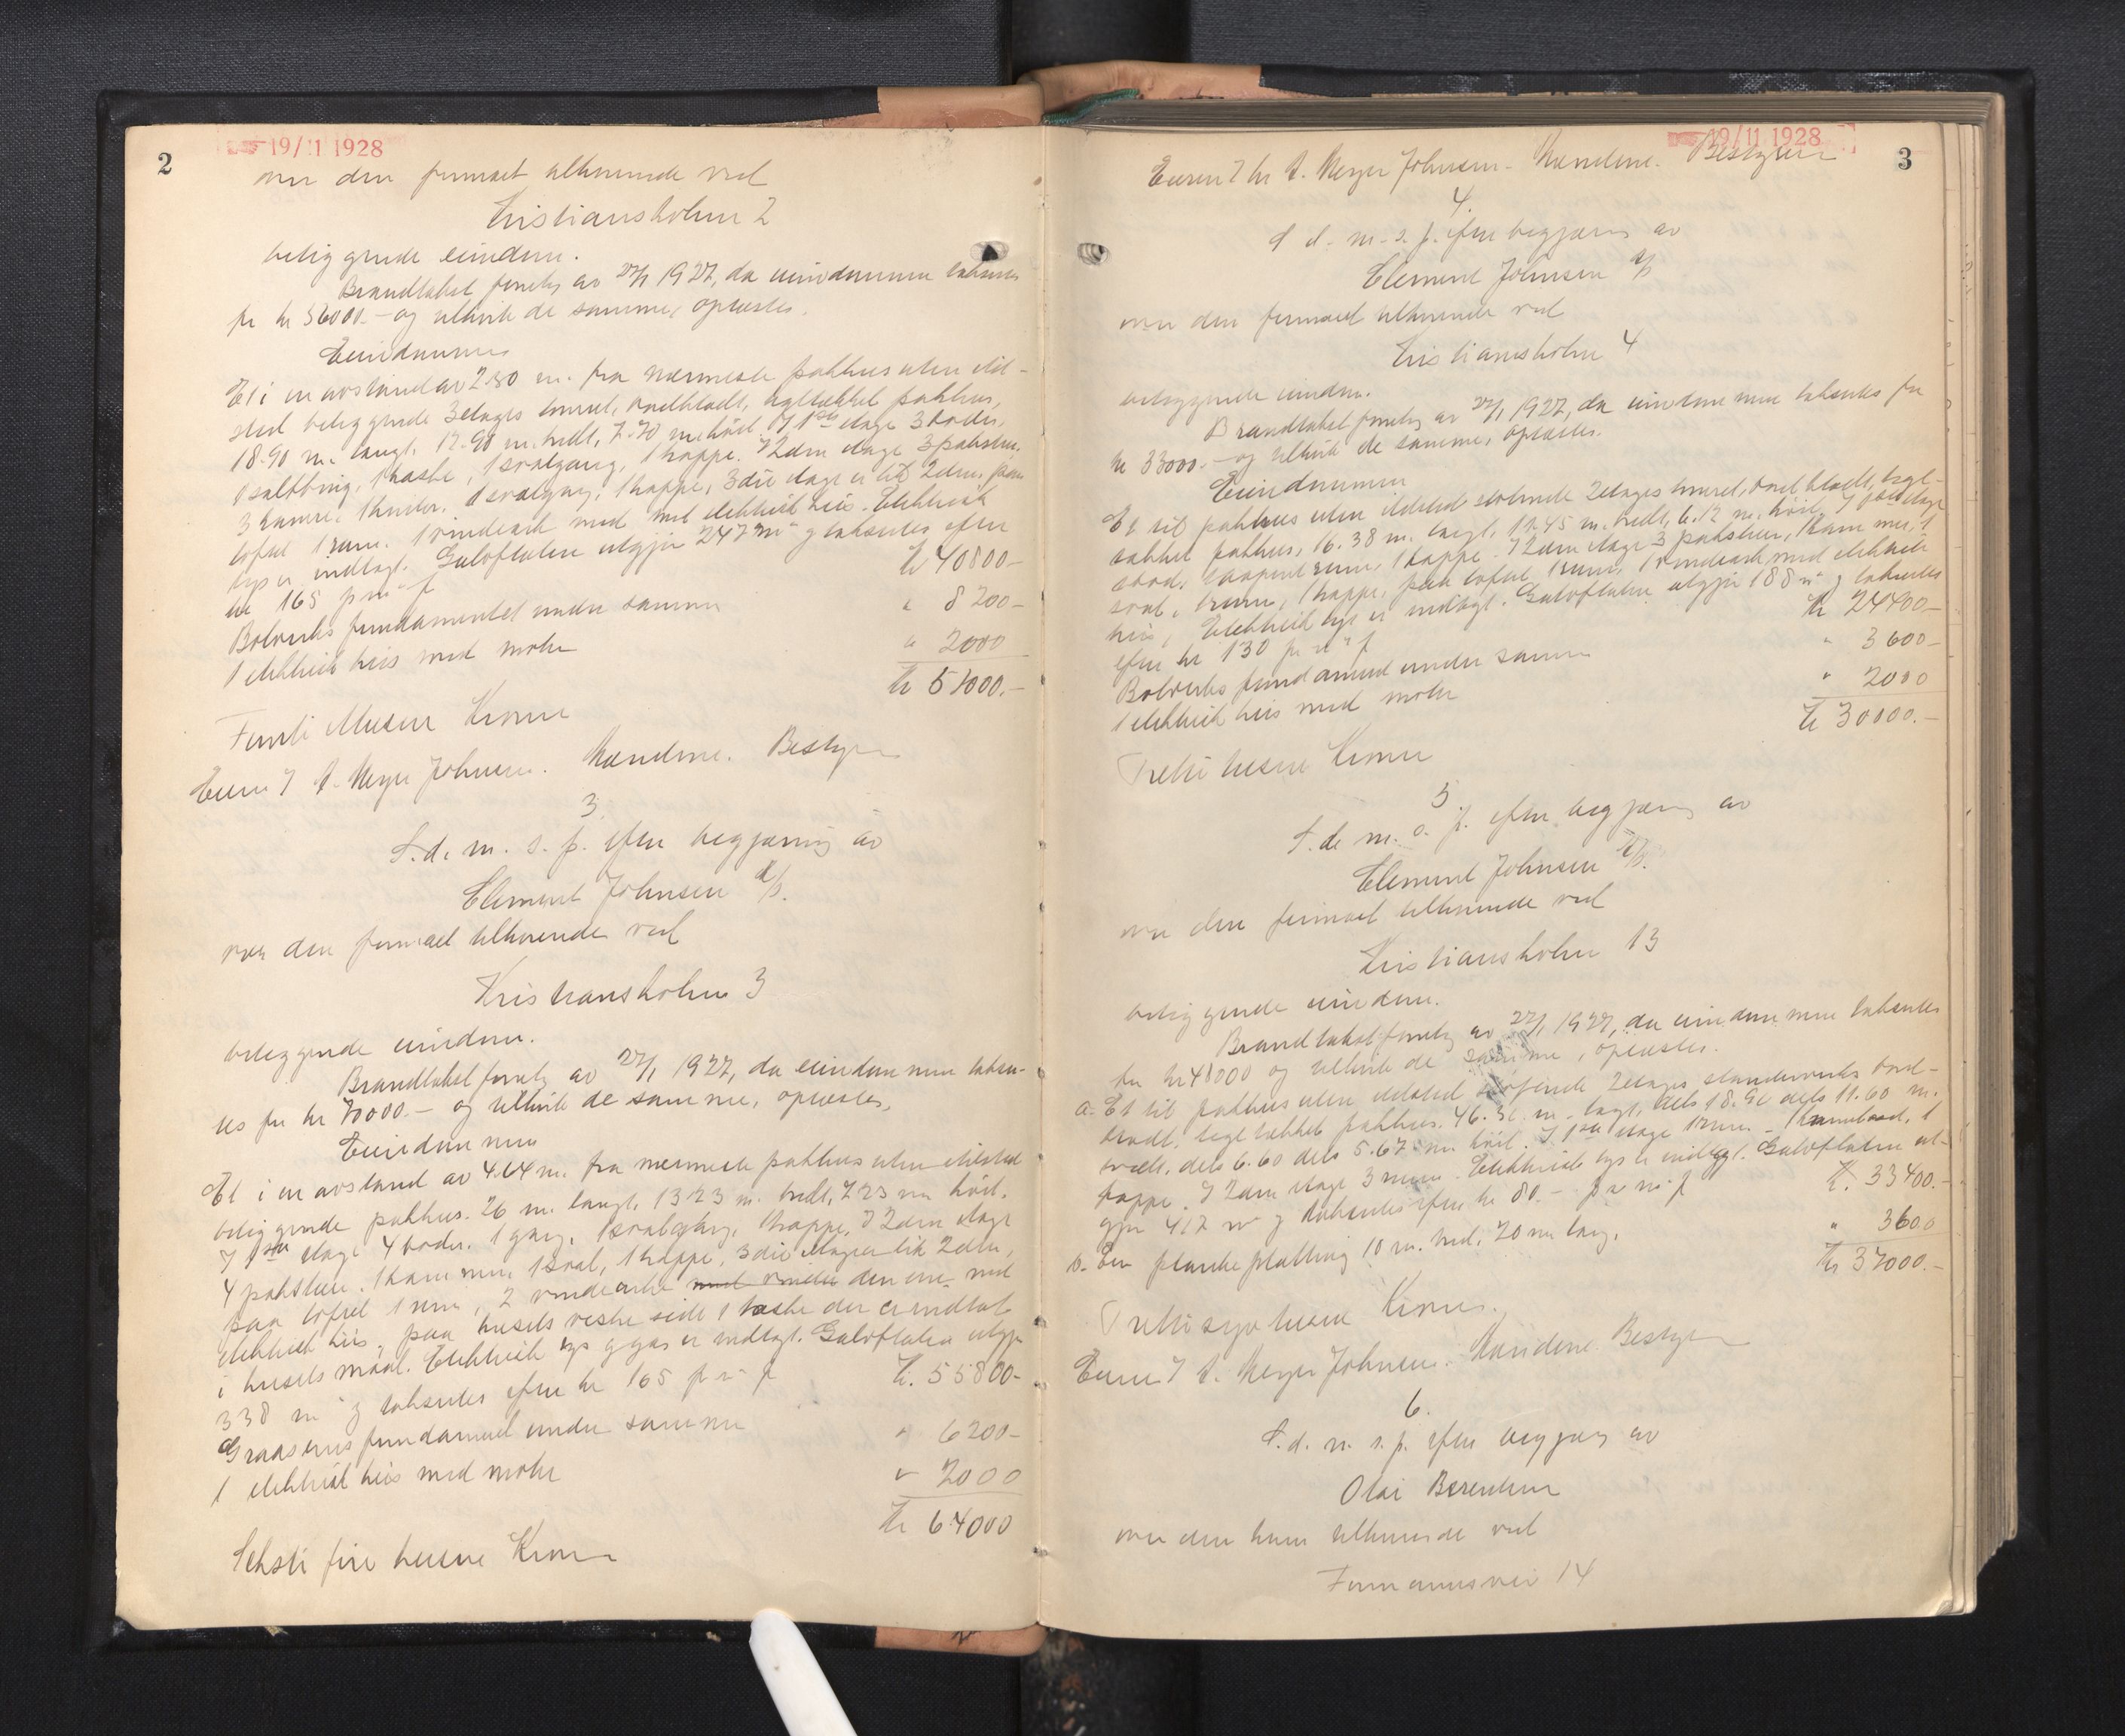 2
19/11 1928
over den firmaet tilhørende ved
Kristiansholm 2
beliggende eiendom.
Brandtakst foretg av 27/1 1927, da eiendommen takseres
for kr 56000.- og tilhørte de samme, oplæstes.
Eiendommen
Et i en avstand av 2.80 m. fra nærmeste pakhus uten ild-
sted beliggende 3 etages tømret, bordklædt, tegltækket pakhus,
18.90 m. langt, 12.90 m. bredt, 7.70 m. høit. I 1ste etage 3 boder,
1 svalgang, 1 trappe. I 2den etage 3 pakstuer,
3 kamre, 1 svalgang, 1 trappe, 3die etage er lik 2den, paa
loftet 1 rum. 1 vindeark med elektrisk heis. Elektrisk
lys er indlagt. Gulvflaten utgjør 247 m² og takseres efter
kr 165 pr m² f kr 40800-
Bolverks fundamentet under samme " 8200-
1 elektrisk heis med motor " 2000
kr 51000.-
Femti en tusen Kroner
Eieren v/ A. Meyer Johnsen. Mændene. Bestyrer
3.
S. d. m. s. f. efter begjæring av
Clement Johnsen A/S.
over den firmaet tilhørende ved
Kristiansholm 3
beliggende eiendom.
Brandtakst foretg av 27/1 1927, da eiendommen takse-
res for kr 70000.- og tilhørte de samme, oplæstes.
Eiendommen
Et i en avstand av 4.64 m. fra nærmeste pakhus uten ildsted
beliggende pakhus. 26 m. langt, 13.23 m. bredt, 7.23 m høit.
I 1ste etage 4 boder. 1 gang, 1 svalgang, 1 trappe. I 2den etage
4 pakstuer. 1 kammer, 1 sval, 1 trappe, 3die etage er lik 2den,
paa loftet 1 rum, 2 vindearke med vinder den ene med
elektrisk heis, paa husets vestre side 1 kasse der er indtat
i husets maal. Elektrisk lys og gas er indlagt. Gulvflaten utgjør
338 m² og takseres efter kr 165 pr m² f kr. 55800-
Graastens fundament under samme " 6200-
1 elektrisk heis med motor " 2000
kr 64000
Seksti fire tusen Kroner
3
19/11 1928
Eieren v/ hr A. Meyer Johnsen - Mændene. Bestyrer
4.
S. d. m. s. f. efter begjæring av
Clement Johnsen A/S
over den firmaet tilhørende ved
Kristiansholm 4
beliggende eiendom.
Brandtakst foretg av 27/1 1927, da eiendommen takseres for
kr 33000.- og tilhørte de samme, oplæstes.
Eiendommen
Et til pakhus uten ildsted støtende 2 etages tømret, bordklædt, tegl-
tækket pakhus, 16.38 m. langt, 11.45 m. bredt, 6.12 m. høit. I 1ste etage
1 trappe. I 2den etage 3 pakstuer, 1 kammer, 1
sval, 1 rum, 1 trappe, paa loftet 1 rum, 1 vindeark med elektrisk
heis, Elektrisk lys er indlagt. Gulvflaten utgjør 188 m² og takseres
efter kr 130 pr m² f kr 24400-
Bolverks fundament under samme " 3600-
1 elektrisk heis med motor " 2000
kr 30000.-
Tretti tusen Kroner
5
S. d. m. s. f. efter begjæring av
Clement Johnsen A/S.
over den firmaet tilhørende ved
Kristiansholm 13
beliggende eiendom.
Brandtakst foretg av 27/1 1927, da eiendommen takseres
for kr 48000 og tilhørte de samme, oplæstes.
a. Et til pakhus uten ildsted støtende 2 etages standverks bord-
klædt, tegltækket pakhus. 46.36 m. langt, dels 18.90 dels 11.60 m.
bredt, dels 6.60 dels 5.67 m høit. I 1ste etage 1 rum - 1
trappe. I 2den etage 3 rum. Elektrisk lys er indlagt. Gulvflaten ut-
gjør 417 m² og takseres efter kr 80.- pr m² f kr. 33400.-
b. En plankeplatting 10 m. bred, 20 m lang. " 3600
kr 37000.-
Trettisyv tusen Kroner.
Eieren v/ A. Meyer Johnsen. Mændene. Bestyrer
6.
S. d. m. s. f. efter begjæring av
Olai Berentsen
over den ham tilhørende ved
Formannsvei 14